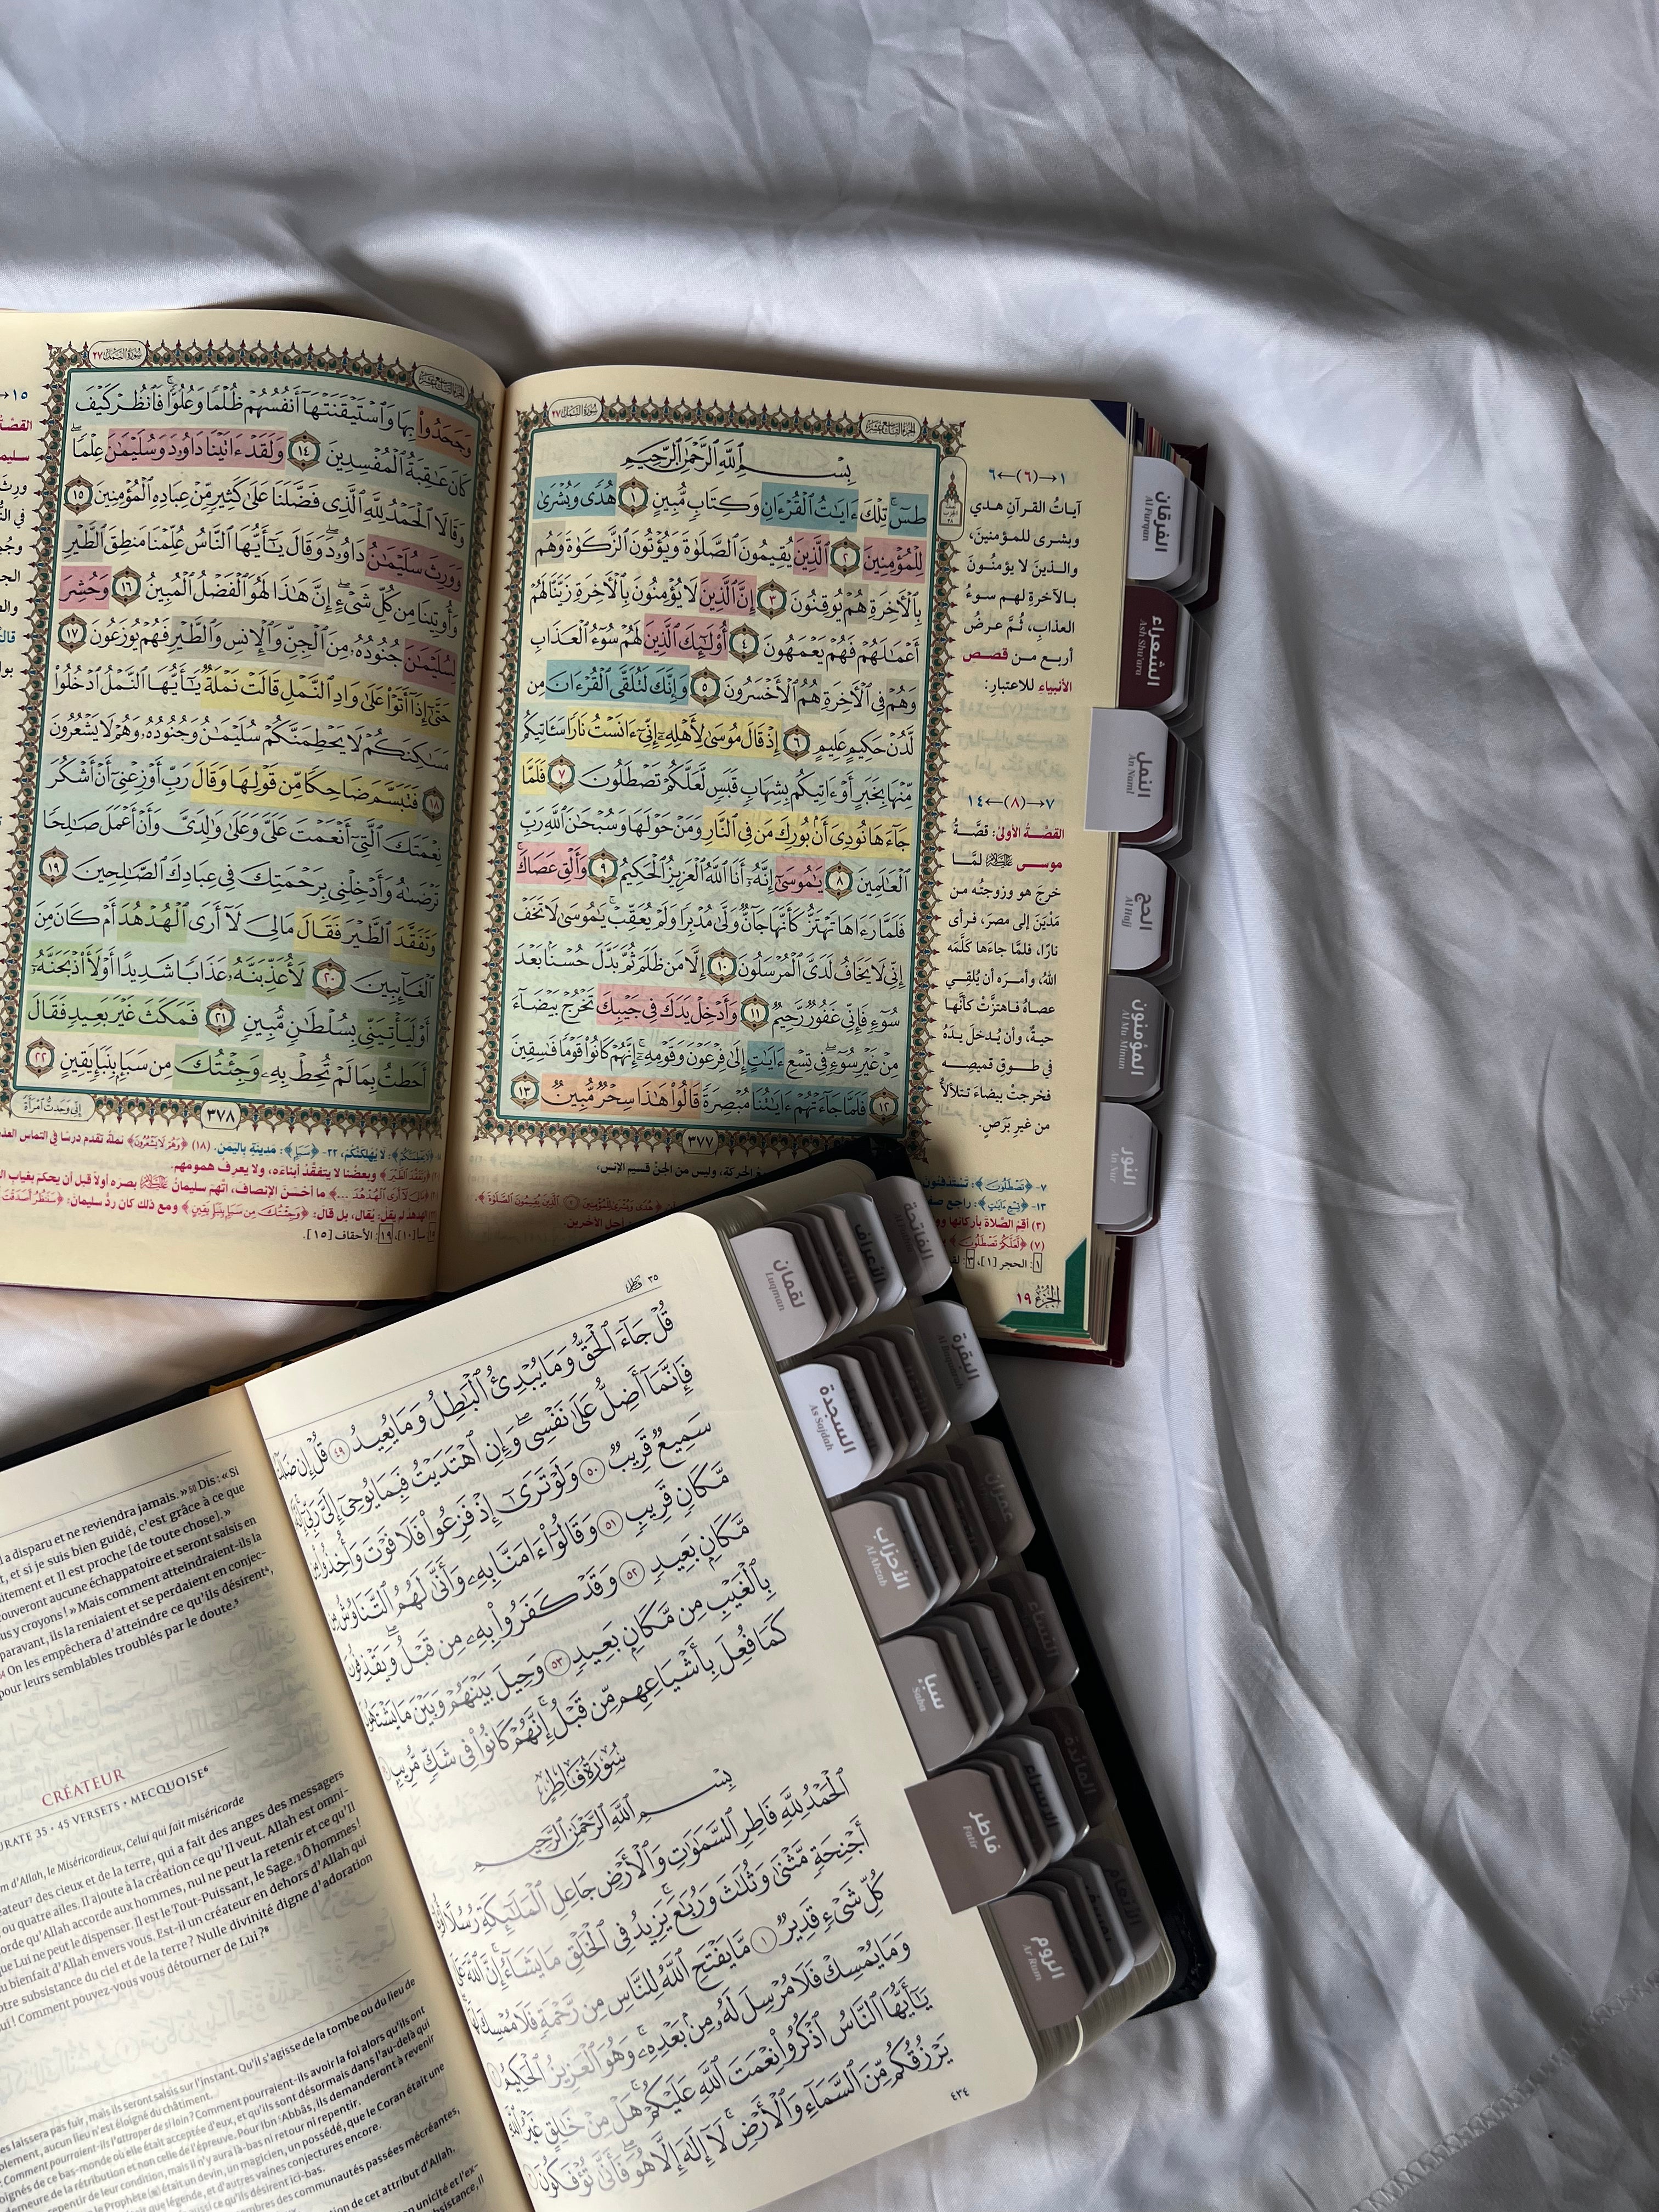 سورة النمل ٢٧
الجزء التاسع عشر
بِسْمِ ٱللَّهِ ٱلرَّحْمَٰنِ ٱلرَّحِيمِ
طسٓ تِلْكَ ءَايَٰتُ ٱلْقُرْءَانِ وَكِتَابٍ مُّبِينٍ ١ هُدًى وَبُشْرَىٰ
لِلْمُؤْمِنِينَ ٢ ٱلَّذِينَ يُقِيمُونَ ٱلصَّلَوٰةَ وَيُؤْتُونَ ٱلزَّكَوٰةَ وَهُم
بِٱلْءَاخِرَةِ هُمْ يُوقِنُونَ ٣ إِنَّ ٱلَّذِينَ لَا يُؤْمِنُونَ بِٱلْءَاخِرَةِ زَيَّنَّا لَهُمْ
أَعْمَٰلَهُمْ فَهُمْ يَعْمَهُونَ ٤ أُو۟لَٰٓئِكَ ٱلَّذِينَ لَهُمْ سُوٓءُ ٱلْعَذَابِ
وَهُمْ فِى ٱلْءَاخِرَةِ هُمُ ٱلْأَخْسَرُونَ ٥ وَإِنَّكَ لَتُلَقَّى ٱلْقُرْءَانَ مِن
لَّدُنْ حَكِيمٍ عَلِيمٍ ٦ إِذْ قَالَ مُوسَىٰ لِأَهْلِهِۦٓ إِنِّىٓ ءَانَسْتُ نَارًا سَـَٔاتِيكُم
مِّنْهَا بِخَبَرٍ أَوْ ءَاتِيكُم بِشِهَابٍ قَبَسٍ لَّعَلَّكُمْ تَصْطَلُونَ ٧ فَلَمَّا
جَآءَهَا نُودِىَ أَنۢ بُورِكَ مَن فِى ٱلنَّارِ وَمَنْ حَوْلَهَا وَسُبْحَٰنَ ٱللَّهِ رَبِّ
ٱلْعَٰلَمِينَ ٨ يَٰمُوسَىٰٓ إِنَّهُۥٓ أَنَا ٱللَّهُ ٱلْعَزِيزُ ٱلْحَكِيمُ ٩ وَأَلْقِ عَصَاكَ
فَلَمَّا رَءَاهَا تَهْتَزُّ كَأَنَّهَا جَآنٌّ وَلَّىٰ مُدْبِرًا وَلَمْ يُعَقِّبْ يَٰمُوسَىٰ لَا تَخَفْ
إِنِّى لَا يَخَافُ لَدَىَّ ٱلْمُرْسَلُونَ ١٠ إِلَّا مَن ظَلَمَ ثُمَّ بَدَّلَ حُسْنًۢا بَعْدَ
سُوٓءٍ فَإِنِّى غَفُورٌ رَّحِيمٌ ١١ وَأَدْخِلْ يَدَكَ فِى جَيْبِكَ تَخْرُجْ بَيْضَآءَ
مِنْ غَيْرِ سُوٓءٍ فِى تِسْعِ ءَايَٰتٍ إِلَىٰ فِرْعَوْنَ وَقَوْمِهِۦٓ إِنَّهُمْ كَانُوا۟ قَوْمًا فَٰسِقِينَ
١٢ فَلَمَّا جَآءَتْهُمْ ءَايَٰتُنَا مُبْصِرَةً قَالُوا۟ هَٰذَا سِحْرٌ مُّبِينٌ ١٣
٣٧٧
١→(٦)←٦
آياتُ القرآنِ هدي
وبشرى للمؤمنينَ،
والذينَ لا يؤمنُونَ
بالآخرةِ لهم سوءُ
العذابِ، ثُمَّ عرضُ
أربع من قصص
الأنبياءِ للاعتبارِ:
٧→(٨)←١٤
القصَّةُ الأولى: قصَّةُ
موسى لمَّا
خرجَ هو وزوجتُه من
مَدْيَنَ إلى مصرَ، فرأى
نارًا، فلمَّا جاءَها كَلَّمَه
اللهُ، وأمرَه أن يُلقِي
عصاهُ فاهتزَّتْ كأنَّها
حيةٌ، وأن يُدخلَ يدَهُ
في طوقِ قميصِه
فخرجتْ بيضاءَ تتلألأُ
من غيرِ بَرَصٍ.
الجزء ١٩
سورة النمل ٢٧
الجزء التاسع عشر
وَجَحَدُوا۟ بِهَا وَٱسْتَيْقَنَتْهَآ أَنفُسُهُمْ ظُلْمًا وَعُلُوًّا فَٱنظُرْ كَيْفَ
كَانَ عَٰقِبَةُ ٱلْمُفْسِدِينَ ١٤ وَلَقَدْ ءَاتَيْنَا دَاوُۥدَ وَسُلَيْمَٰنَ عِلْمًا
وَقَالَا ٱلْحَمْدُ لِلَّهِ ٱلَّذِى فَضَّلَنَا عَلَىٰ كَثِيرٍ مِّنْ عِبَادِهِ ٱلْمُؤْمِنِينَ ١٥
وَوَرِثَ سُلَيْمَٰنُ دَاوُۥدَ وَقَالَ يَٰٓأَيُّهَا ٱلنَّاسُ عُلِّمْنَا مَنطِقَ ٱلطَّيْرِ
وَأُوتِينَا مِن كُلِّ شَىْءٍ إِنَّ هَٰذَا لَهُوَ ٱلْفَضْلُ ٱلْمُبِينُ ١٦ وَحُشِرَ
لِسُلَيْمَٰنَ جُنُودُهُۥ مِنَ ٱلْجِنِّ وَٱلْإِنسِ وَٱلطَّيْرِ فَهُمْ يُوزَعُونَ ١٧
حَتَّىٰٓ إِذَآ أَتَوْا۟ عَلَىٰ وَادِ ٱلنَّمْلِ قَالَتْ نَمْلَةٌ يَٰٓأَيُّهَا ٱلنَّمْلُ ٱدْخُلُوا۟
مَسَٰكِنَكُمْ لَا يَحْطِمَنَّكُمْ سُلَيْمَٰنُ وَجُنُودُهُۥ وَهُمْ لَا يَشْعُرُونَ
١٨ فَتَبَسَّمَ ضَاحِكًا مِّن قَوْلِهَا وَقَالَ رَبِّ أَوْزِعْنِىٓ أَنْ أَشْكُرَ
نِعْمَتَكَ ٱلَّتِىٓ أَنْعَمْتَ عَلَىَّ وَعَلَىٰ وَٰلِدَىَّ وَأَنْ أَعْمَلَ صَٰلِحًا
تَرْضَىٰهُ وَأَدْخِلْنِى بِرَحْمَتِكَ فِى عِبَادِكَ ٱلصَّٰلِحِينَ ١٩
وَتَفَقَّدَ ٱلطَّيْرَ فَقَالَ مَالِىَ لَآ أَرَى ٱلْهُدْهُدَ أَمْ كَانَ مِنَ
ٱلْغَآئِبِينَ ٢٠ لَأُعَذِّبَنَّهُۥ عَذَابًا شَدِيدًا أَوْ لَأَا۟ذْبَحَنَّهُۥٓ
أَوْ لَيَأْتِيَنِّى بِسُلْطَٰنٍ مُّبِينٍ ٢١ فَمَكَثَ غَيْرَ بَعِيدٍ فَقَالَ
أَحَطتُ بِمَا لَمْ تُحِطْ بِهِۦ وَجِئْتُكَ مِن سَبَإٍۭ بِنَبَإٍ يَقِينٍ ٢٢
٣٧٨
إِنِّى وَجَدتُّ ٱمْرَأَةً
الفرقان
Al Furqan
الشعراء
Ash Shu'ara
النمل
An Naml
الحج
Al Hajj
المؤمنون
Al Mu'minun
النور
An Nur
٣٥ فاطر
قُلْ جَآءَ ٱلْحَقُّ وَمَا يُبْدِئُ ٱلْبَٰطِلُ وَمَا يُعِيدُ ٤٩ قُلْ إِن
فَإِنَّمَآ أَضِلُّ عَلَىٰ نَفْسِى وَإِنِ ٱهْتَدَيْتُ فَبِمَا يُوحِىٓ إِلَىَّ رَبِّىٓ
سَمِيعٌ قَرِيبٌ ٥٠ وَلَوْ تَرَىٰٓ إِذْ فَزِعُوا۟ فَلَا فَوْتَ وَأُخِذُوا۟
مَّكَانٍ قَرِيبٍ ٥١ وَقَالُوٓا۟ ءَامَنَّا بِهِۦ وَأَنَّىٰ لَهُمُ ٱلتَّنَاوُشُ
مَّكَانٍۭ بَعِيدٍ ٥٢ وَقَدْ كَفَرُوا۟ بِهِۦ مِن قَبْلُ وَيَقْذِفُونَ
بِٱلْغَيْبِ مِن مَّكَانٍۭ بَعِيدٍ ٥٣ وَحِيلَ بَيْنَهُمْ وَبَيْنَ مَا يَشْتَهُونَ
كَمَا فُعِلَ بِأَشْيَاعِهِم مِّن قَبْلُ إِنَّهُمْ كَانُوا۟ فِى شَكٍّ مُّرِيبٍۭ
سُورَةُ فَاطِرٍ
بِسْمِ ٱللَّهِ ٱلرَّحْمَٰنِ ٱلرَّحِيمِ
ٱلْحَمْدُ لِلَّهِ فَاطِرِ ٱلسَّمَٰوَٰتِ وَٱلْأَرْضِ جَاعِلِ ٱلْمَلَٰٓئِكَةِ رُسُلًا
أَجْنِحَةٍ مَّثْنَىٰ وَثُلَٰثَ وَرُبَٰعَ يَزِيدُ فِى ٱلْخَلْقِ مَا يَشَآءُ إِنَّ ٱللَّهَ عَلَىٰ
كُلِّ شَىْءٍ قَدِيرٌ ١ مَّا يَفْتَحِ ٱللَّهُ لِلنَّاسِ مِن رَّحْمَةٍ فَلَا مُمْسِكَ
وَمَا يُمْسِكْ فَلَا مُرْسِلَ لَهُۥ مِنۢ بَعْدِهِۦ وَهُوَ ٱلْعَزِيزُ ٱلْحَكِيمُ
يَٰٓأَيُّهَا ٱلنَّاسُ ٱذْكُرُوا۟ نِعْمَتَ ٱللَّهِ عَلَيْكُمْ هَلْ مِنْ خَٰلِقٍ غَيْرُ ٱللَّهِ
يَرْزُقُكُم مِّنَ ٱلسَّمَآءِ وَٱلْأَرْضِ لَآ إِلَٰهَ إِلَّا هُوَ فَأَنَّىٰ تُؤْفَكُونَ
٤٣٤
a disparu et ne reviendra jamais. » 50 Dis : « Si
, et si je suis bien guidé, c'est grâce à ce que
itement et Il est proche [de toute chose]. »
rouveront aucune échappatoire et seront saisis en
us y croyons ! » Mais comment atteindraient-ils la
paravant, ils la reniaient et se perdaient en conjec-
On les empêchera d'atteindre ce qu'ils désirent⁴,
pour leurs semblables troublés par le doute.⁵
CRÉATEUR
URATE 35 • 45 VERSETS • MECQUOISE⁶
m d'Allah, le Miséricordieux, Celui qui fait miséricorde
éateur⁷ des cieux et de la terre, qui a fait des anges des messagers
ou quatre ailes. Il ajoute à la création ce qu'Il veut. Allah est omni-
orde qu'Allah accorde aux hommes, nul ne peut la retenir et ce qu'Il
que Lui ne peut le dispenser. Il est le Tout-Puissant, le Sage. 3 Ô hommes !
u bienfait d'Allah envers vous. Est-il un créateur en dehors d'Allah qui
otre subsistance du ciel et de la terre ? Nulle divinité digne d'adoration
ui ! Comment pouvez-vous vous détourner de Lui ?⁸
لقمان
Luqman
السجدة
As Sajdah
الأحزاب
Al Ahzab
سبأ
Saba
فاطر
Fatir
الروم
Ar Rum
الأعراف
الفاتحة
البقرة
عمران
النساء
المائدة
الإسراء
الأنعام
يوسف